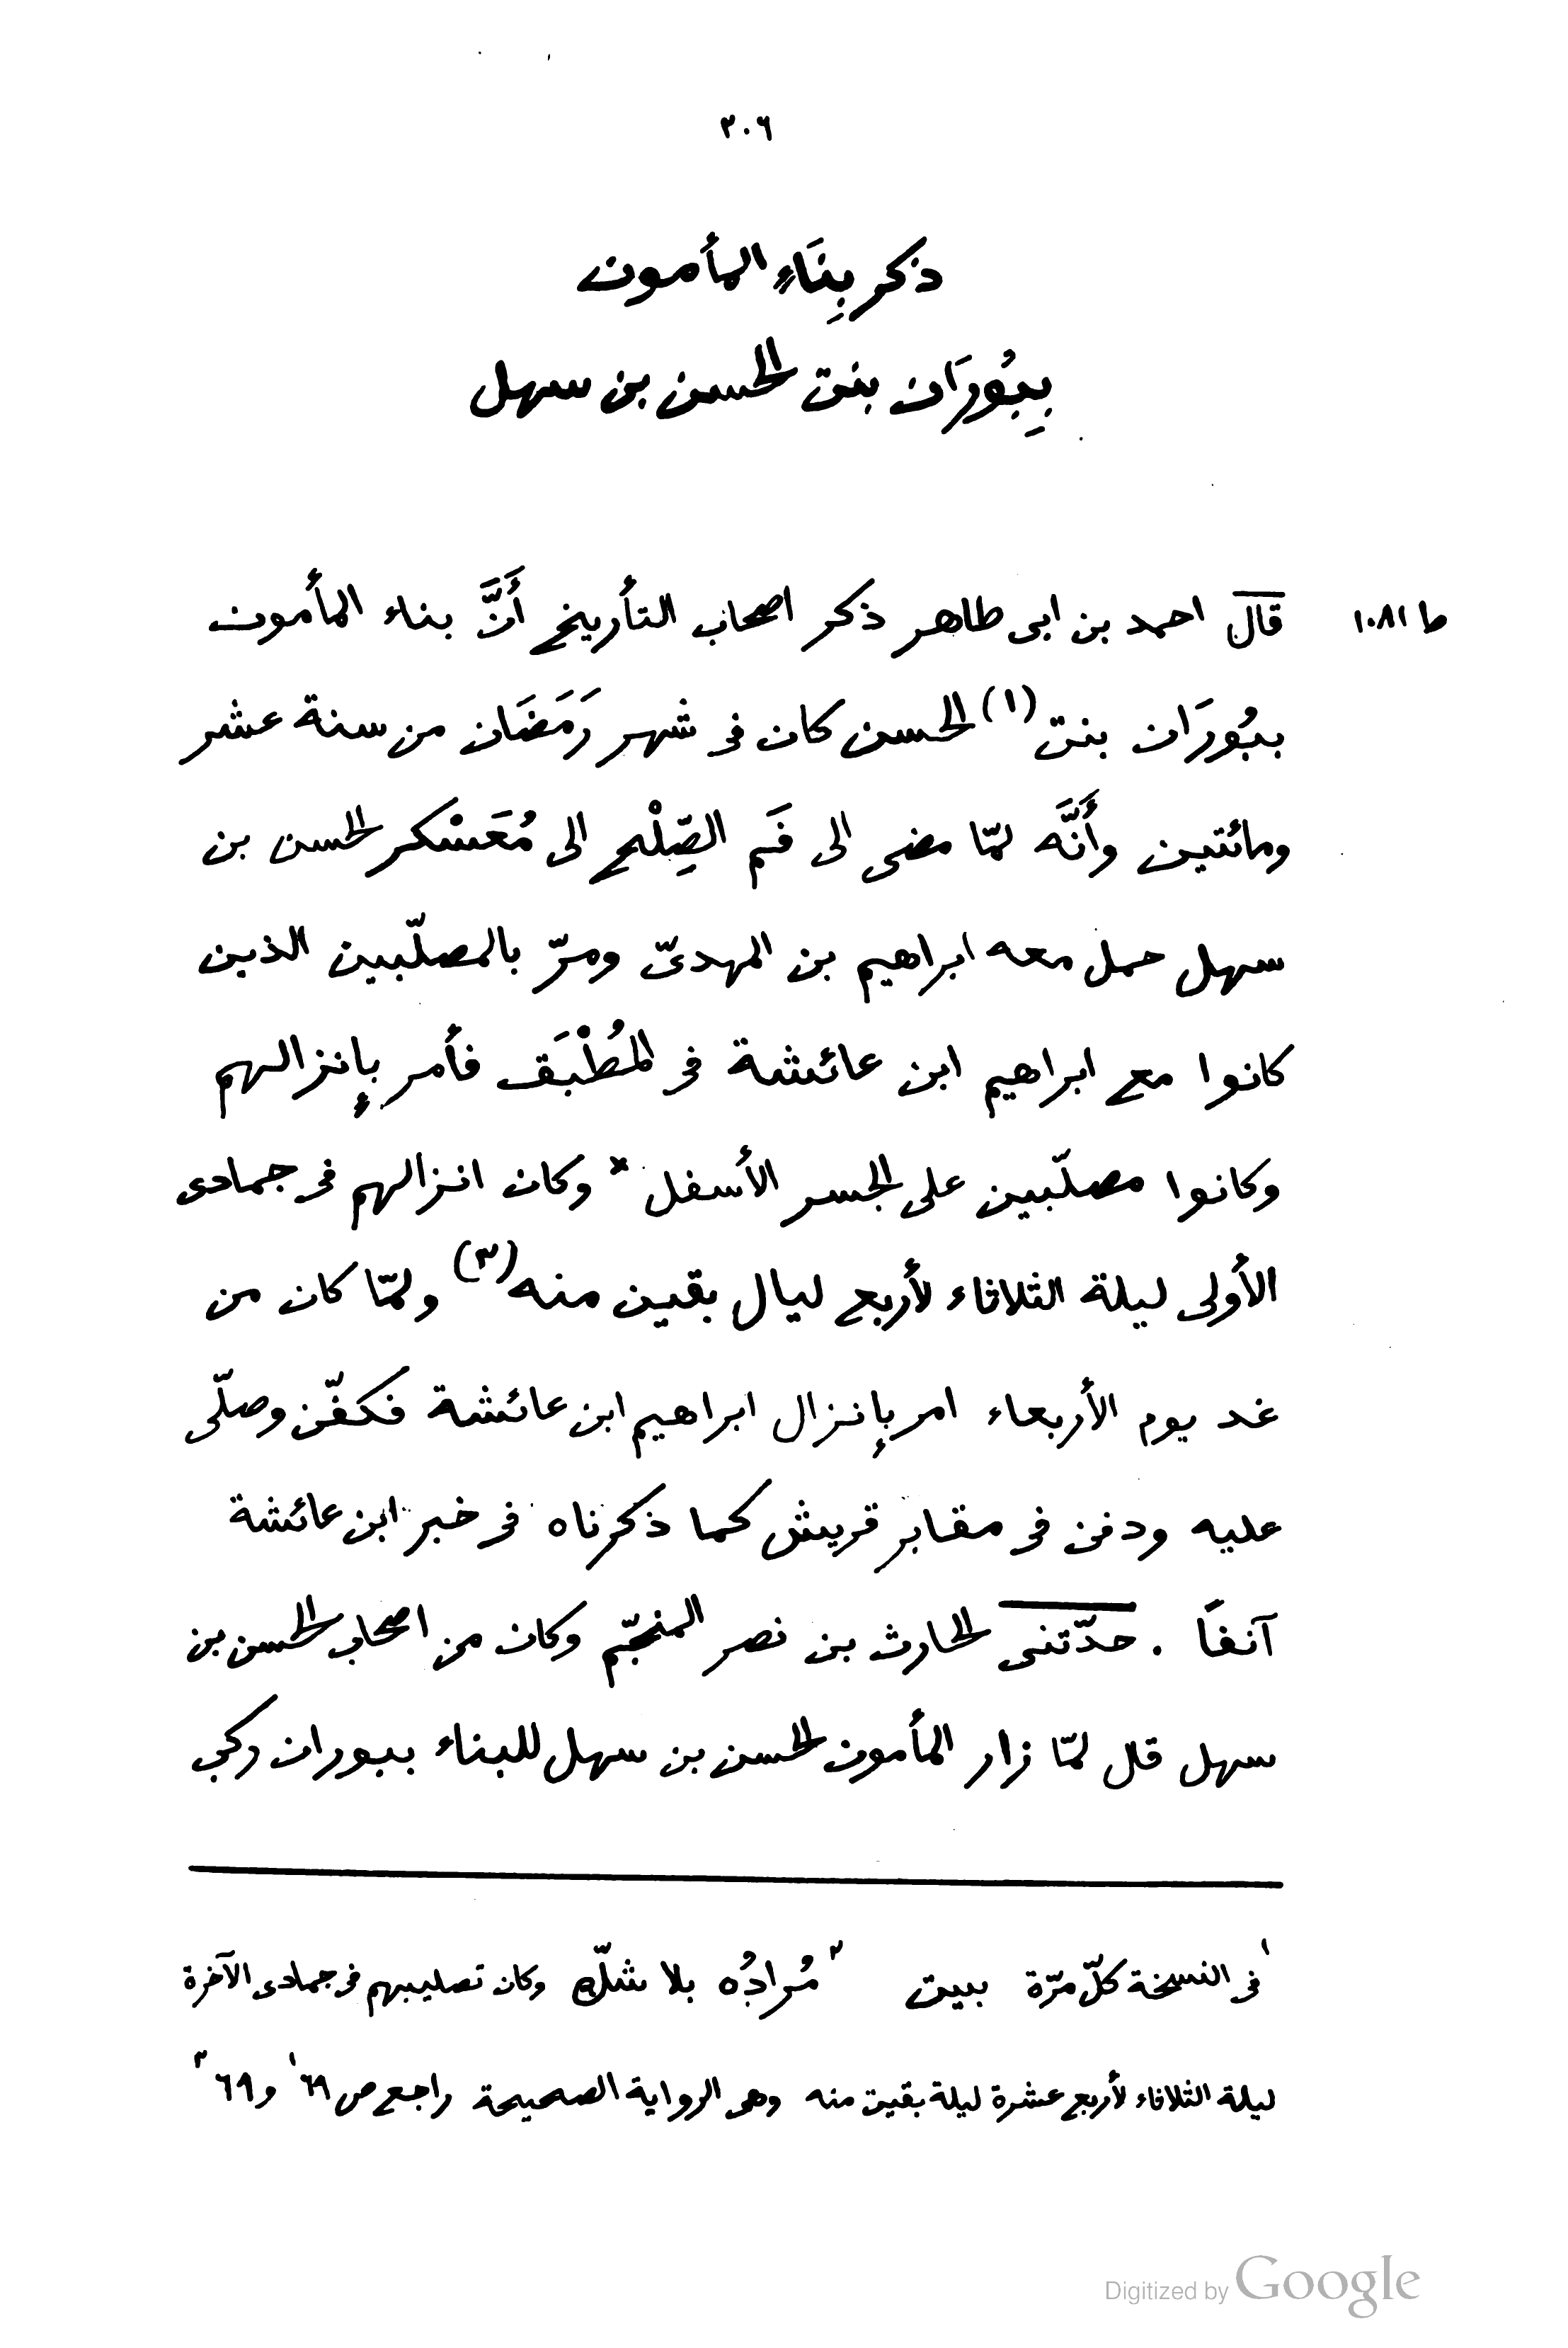 ٢٠٦
ذكر بِنَاءِ المأمون
بِبُورَان بنت الحسن بن سهل
ط ١٠٨١ قال احمد بن ابى طاهر ذكر اصحاب التأريخ أَنَّ بناء المأمون
ببُورَان بنت (١) الحسن كان فى شهر رَمَضَان من سنة عشر
ومائتين وأَنَّه لمّا مضى الى فَم الصِّلْح الى مُعَسْكر الحسن بن
سهل حمل معه ابراهيم بن المهدىّ ومرّ بالمصلّبين الذين
كانوا مع ابراهيم ابن عائشة فى المُطْبَق فأمر بإنزالهم
وكانوا مصلّبين على الجسر الأسفل * وكان انزالهم فى جمادى
الأولى ليلة الثلاثاء لأربع ليال بقين منه (٢) ولمّا كان من
غد يوم الأربعاء امر بإنزال ابراهيم ابن عائشة فكفّن وصلّى
عليه ودفن فى مقابر قريش كما ذكرناه فى خبر ابن عائشة
آنفاً . حدّثنى الحارث بن نصر المنجّم وكان من اصحاب الحسن بن
سهل قال لمّا زار المأمون الحسن بن سهل للبناء ببوران ركب
١ فى النسخة كلّ مرّة ببيت ٢ مُرادُه بلا شكّ وكان تصليبهم فى جمادى الآخرة
ليلة الثلاثاء لأربع عشرة ليلة بقيت منه وهى الرواية الصحيحة راجع ص ٦٩ ١ و ٦٩ ٣
Digitized by Google